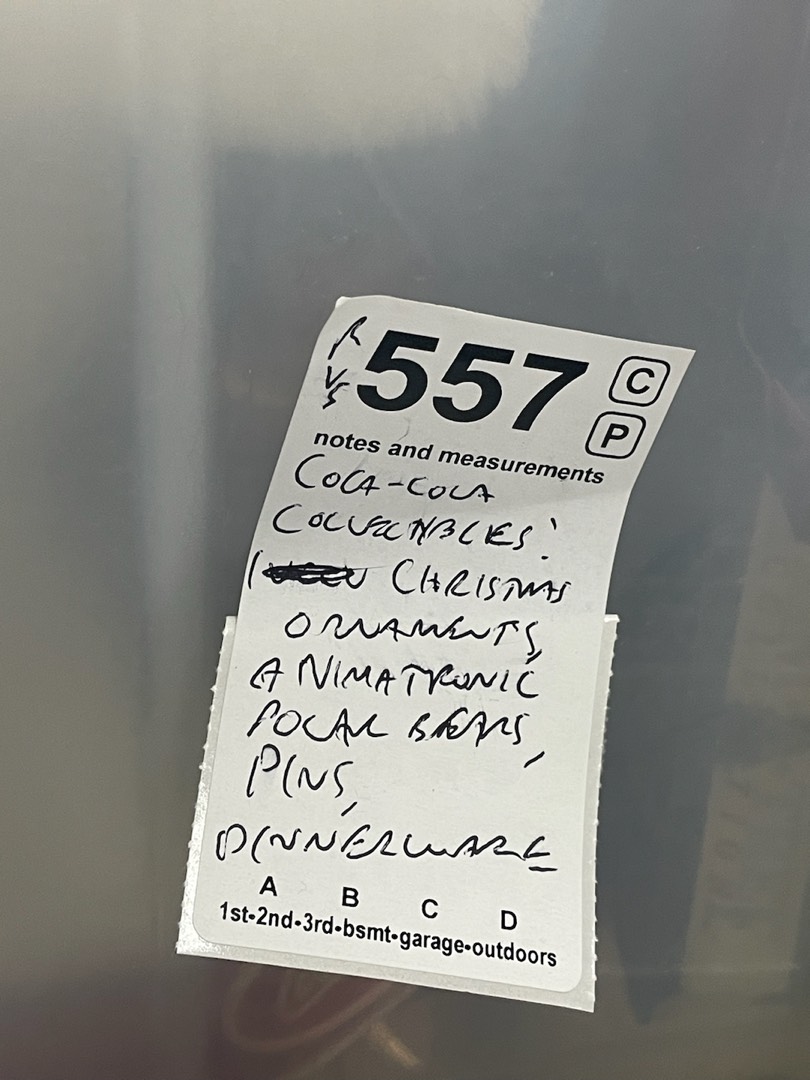 557
C
P
notes and measurements
COCA-COLA
COLLECTIBLES:
CHRISTMAS
ORNAMENTS,
ANIMATRONIC
POLAR BEARS,
PINS,
DINNERWARE
A B C D
1st•2nd•3rd•bsmt•garage•outdoors